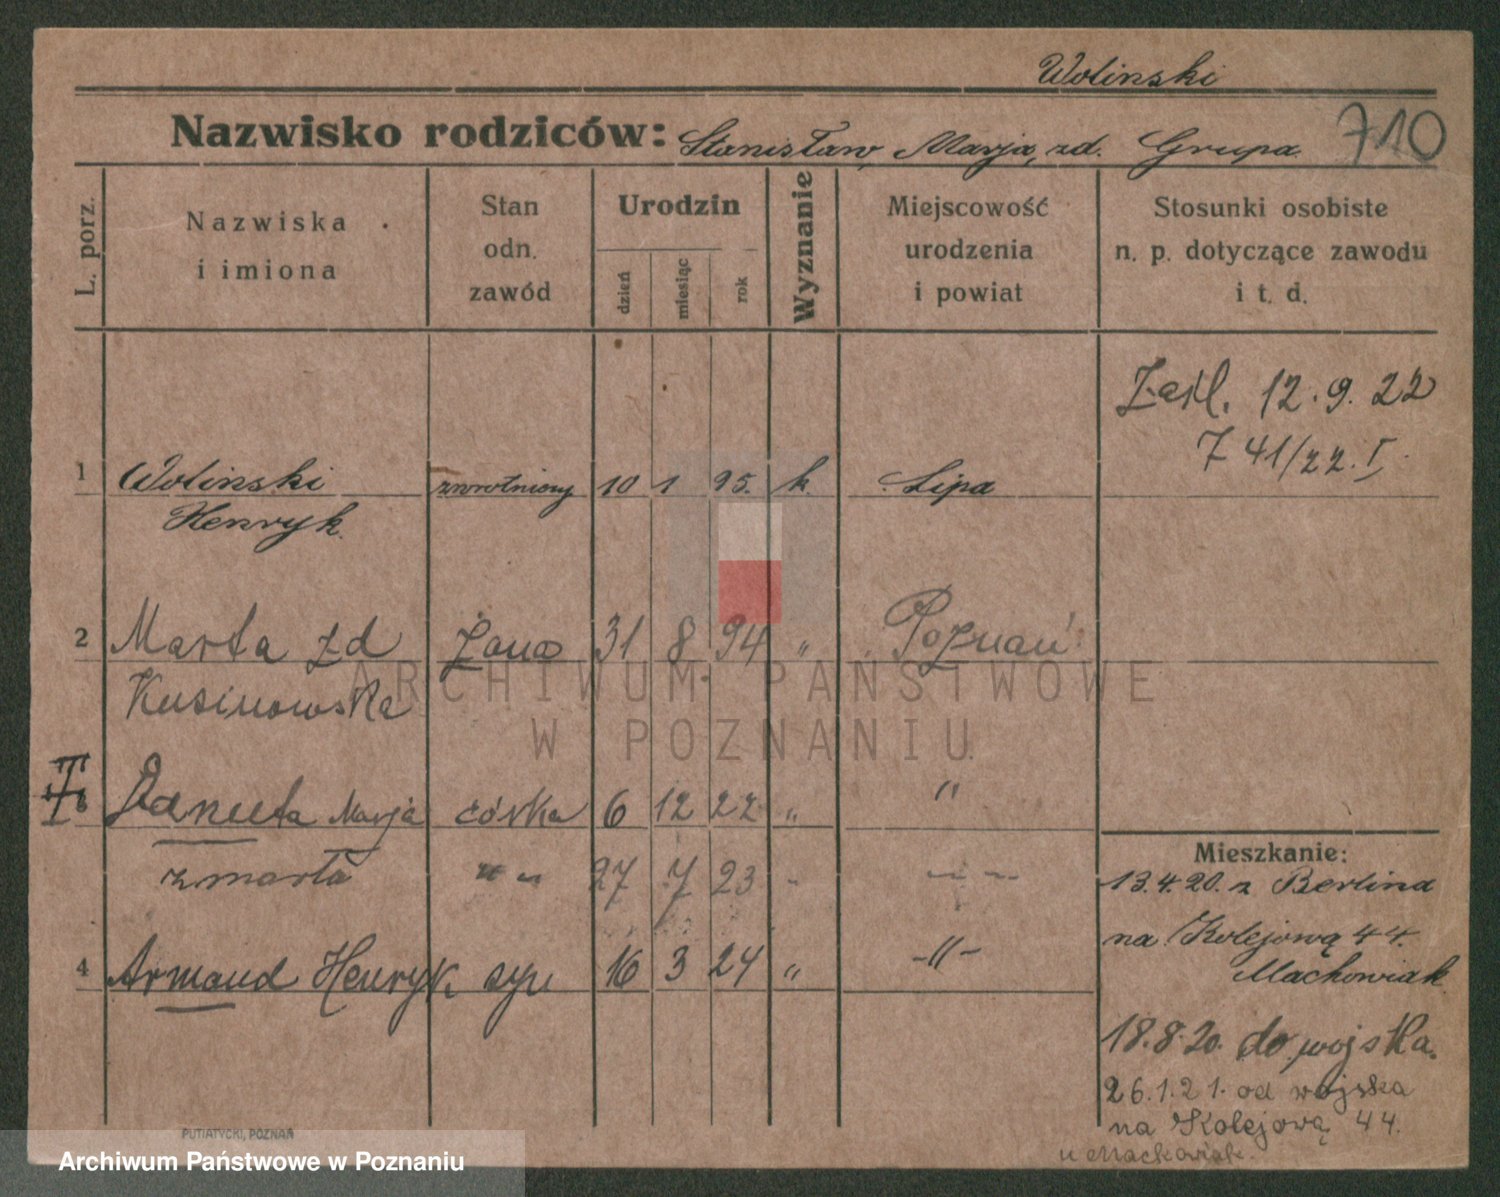 Wolinski
Nazwisko rodziców: Stanisław, Marja, zd. Grupa 710
L. porz.
Nazwiska
i imiona
Stan
odn.
zawód
Urodzin
dzień
miesiąc
rok
Wyznanie
Miejscowość
urodzenia
i powiat
Stosunki osobiste
n. p. dotyczące zawodu
i t. d.
Zaśl. 12.9.22
741/22. I.
1 Woliński zwrotniczy 10 1 95. k. Lipa
Henryk.
2 Marta zd żona 31 8 94 " Poznań
Kusinowska
Danuta Marja córka 6 12 22 " "
zmarła " " 27 7 23 - - -
4 Armand Henryk syn 16 3 24 " -"-
Mieszkanie:
13.4.20. z Berlina
na Kolejową 44.
Machowiak.
18.8.20. do wojska.
26.1.21. od wojska
na Kolejową 44.
u Mackowiak.
PUTIATYCKI, POZNAŃ
ARCHIWUM PAŃSTWOWE
W POZNANIU
Archiwum Państwowe w Poznaniu